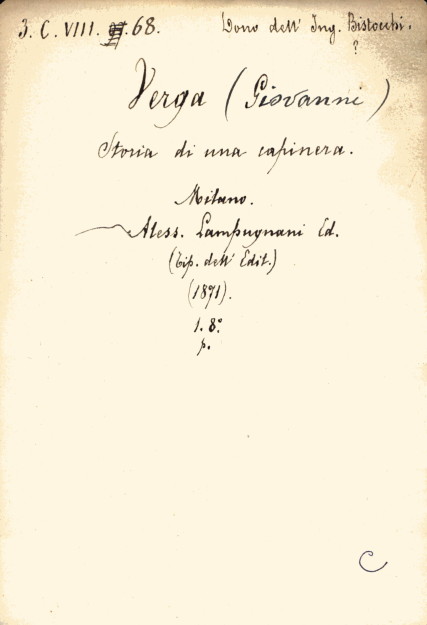 3. C. VIII. 68. Dono dell' Ing. Bistocchi.
?
Verga (Giovanni)
Storia di una capinera.
Milano.
Aless. Lampugnani Ed.
(Tip. dell' Edit.)
(1871).
1. 8.°
p.
C